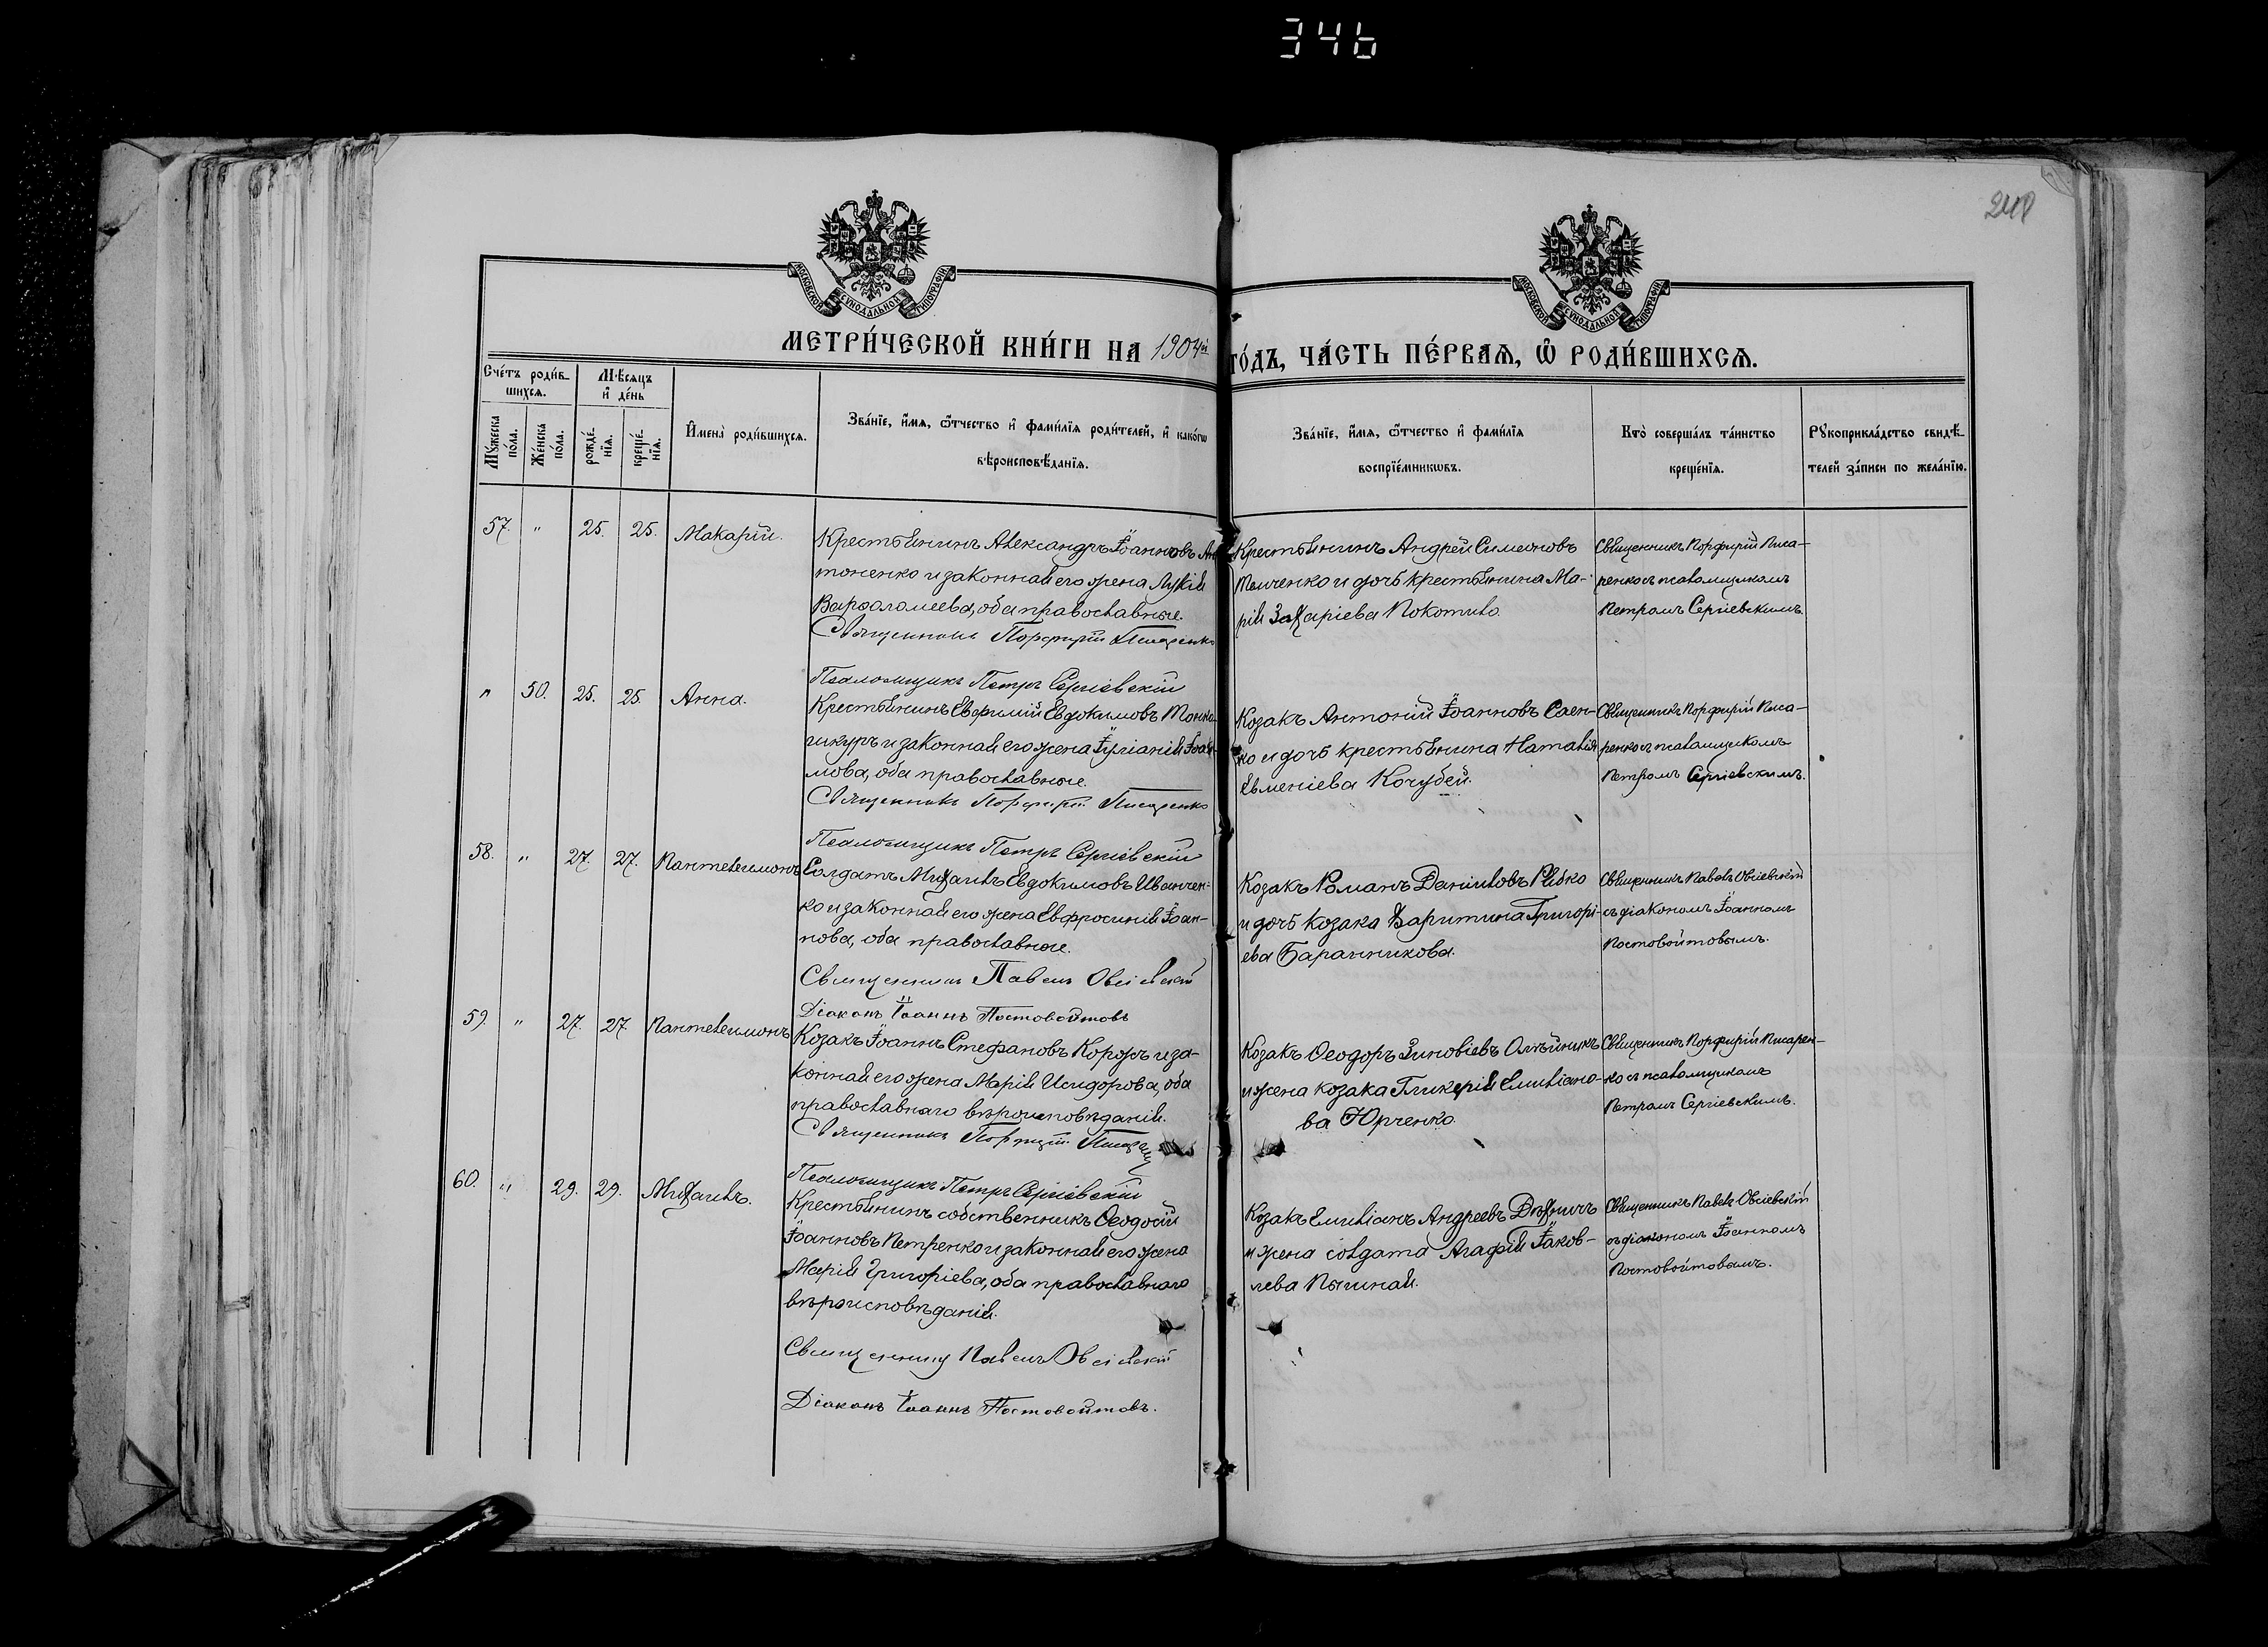 346
248
МОСКОВСКОЙ СѴНОДАЛЬНОЙ ТИПОГРАФІИ
МОСКОВСКОЙ СѴНОДАЛЬНОЙ ТИПОГРАФІИ
МЕТРИ́ЧЕСКОЙ КНИ́ГИ НА 1904й ГО́ДЪ, ЧА́СТЬ ПЕ́РВАѦ, Ѿ РОДИ́ВШИХСѦ.
Сче́тъ роди́в-
шихсѧ.
Мѣ́сяцъ
и҆ де́нь
Мꙋ́жеска
по́ла.
Же́нска
по́ла.
рожде́-
нїѧ.
креще́-
нїѧ.
И҆мена̀ роди́вшихсѧ.
Зва́нїе, и҆́мѧ, ѻ҆́тчество и҆ фами́лїѧ роди́телей, и҆ како́гѡ
вѣроисповѣ́данїѧ.
Зва́нїе, и҆́мѧ, ѻ҆́тчество и҆ фами́лїѧ
воспрїе́мникѡвъ.
Кто̀ соверша́лъ та́инство
креще́нїѧ.
Рꙋкоприкла́дство свидѣ́-
телей за́писи по жела́нїю.
57. " 25. 25. Макарій.
Крестьянинъ Александръ Іоанновъ Ан
тоненко и законная его жена Лукія
Варѳоломеева, оба православные.
Священникъ Порфирій Писаренко
Псаломщикъ Петръ Сергіевскій
Крестьянинъ Андрей Симеоновъ
и дочь крестьянина Ма-
рія Захаріева Покотило
Священникъ Порфирій Писа-
ренко съ псаломщикомъ
Петромъ Сергіевскимъ.
" 50. 25. 25. Анна.
Крестьянинъ Евфимій Евдокимовъ
и законная его жена Іуліанія
оба православные.
Священникъ Порфирій Писаренко
Псаломщикъ Петръ Сергіевскій
Козакъ Антоній Іоанновъ Саен-
ко и дочь крестьянина Наталія
Евменіева Кочубей.
Священникъ Порфирій Писа-
ренко съ псаломщикомъ
Петромъ Сергіевскимъ.
58. " 27. 27. Пантелеимонъ
Солдатъ Михаилъ Евдокимовъ Иванчен-
ко и законная его жена Евфросинія Іоан-
нова, оба православные.
Священникъ Павелъ Овсіевскій
Діаконъ Іоаннъ Постовойтовъ
Козакъ Романъ Даніиловъ Рябко
и дочь козака Харитина Григорі-
ева Баранникова.
Священникъ Павелъ Овсіевскій
съ діакономъ Іоанномъ
Постовойтовымъ.
59. " 27. 27. Пантелеимонъ
Козакъ Іоаннъ Стефановъ Корохъ и за-
конная его жена Марія Исидорова, оба
православнаго вѣроисповѣданія.
Священникъ Порфирій Писаренко
Псаломщикъ Петръ Сергіевскій
Козакъ Ѳеодоръ Зиновіевъ Олѣйникъ
и жена козака Гликерія Емиліано-
ва Юрченко.
Священникъ Порфирій Писарен-
ко съ псаломщикомъ
Петромъ Сергіевскимъ.
60. " 29. 29. Михаилъ.
Крестьянинъ собственникъ Ѳеодосій
Іоанновъ Петренко и законная его жена
Марія Григоріева, оба православнаго
вѣроисповѣданія.
Священникъ Павелъ Овсіевскій
Діаконъ Іоаннъ Постовойтовъ.
Козакъ Емиліанъ Андреевъ
и жена солдата Агафія Іаков-
лева
Священникъ Павелъ Овсіевскій
съ діакономъ Іоанномъ
Постовойтовымъ.